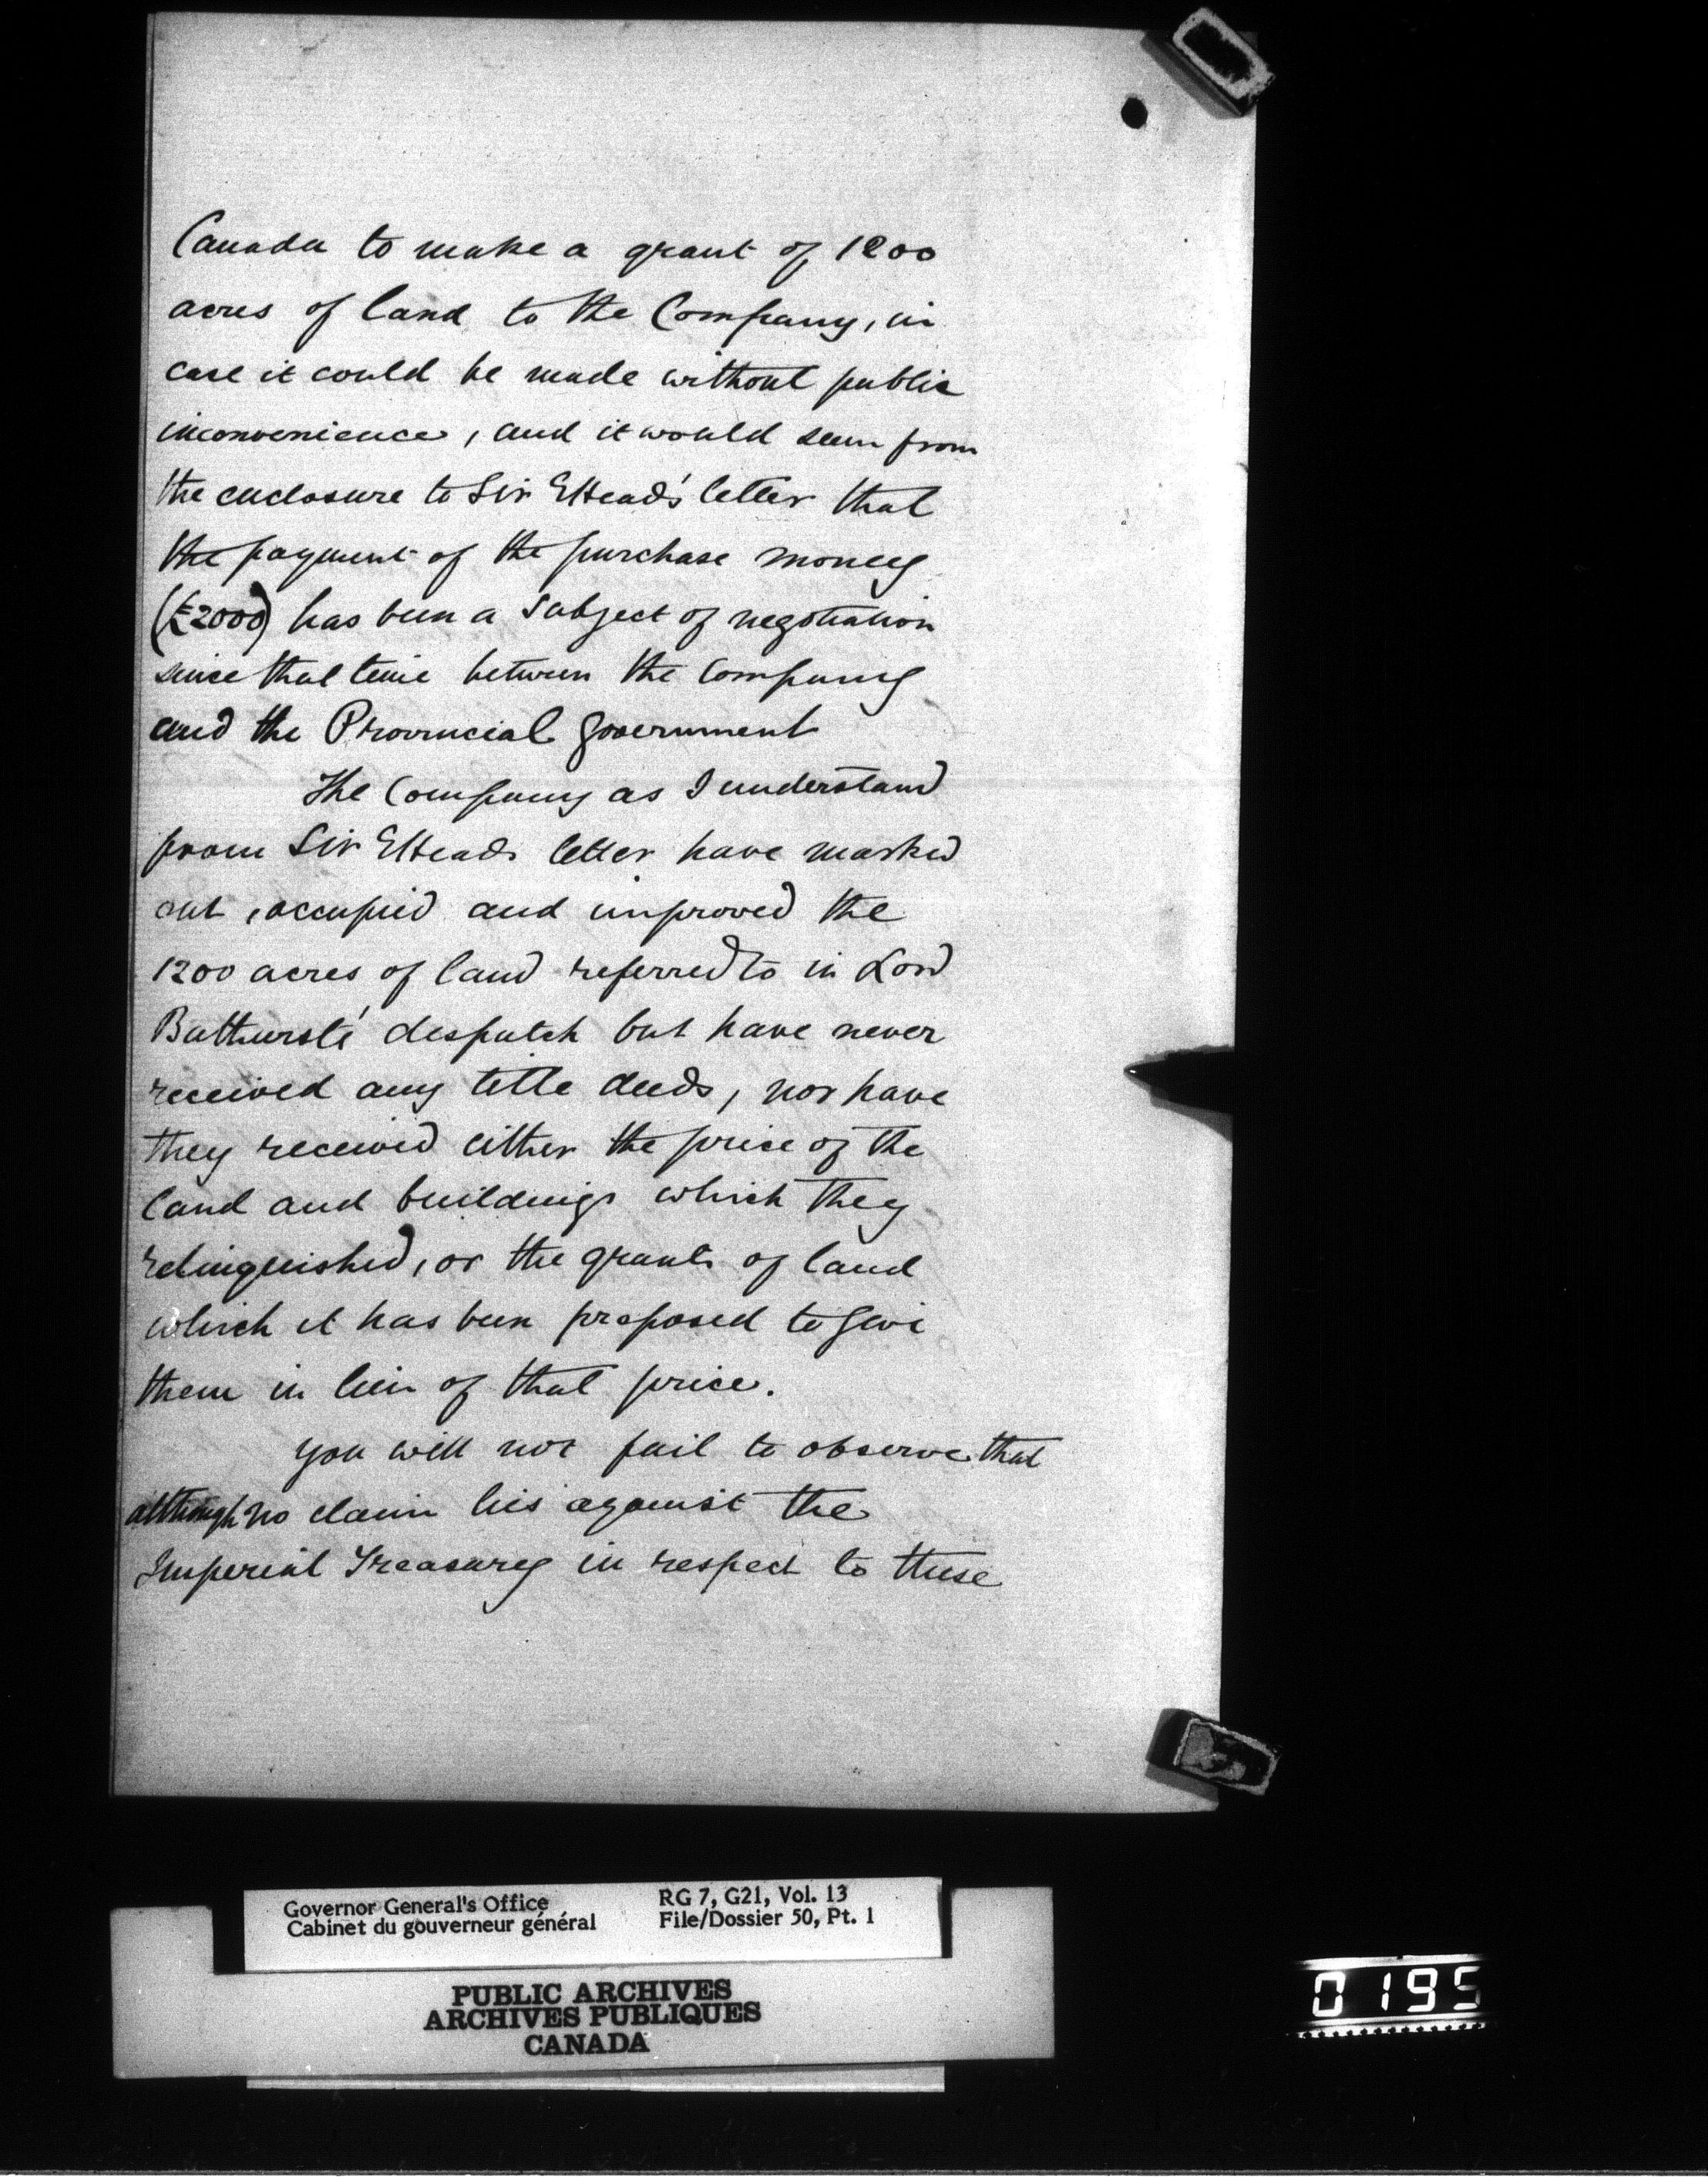 Canada to make a grant of 1200
acres of land to the Company, in
case it could be made without public
inconvenience, and it would seem from
the enclosure to Sir E Head's letter that
the payment of the purchase money
(£2000) has been a subject of negotiation
since that time between the Company
and the Provincial Government
The Company as I understand
from Sir E Heads letter have marked
out, occupied and improved the
1200 acres of land referred to in Lord
Bathursts' despatch but have never
received any title deeds, nor have
they received either the price of the
land and buildings which they
relinquished, or the grants of land
which it has been proposed to give
them in lieu of that price.
You will not fail to observe that
although no claim lies against the
Imperial Treasury in respect to these
Governor General's Office
Cabinet du gouverneur général
RG 7, G21, Vol. 13
File/Dossier 50, Pt. 1
PUBLIC ARCHIVES
ARCHIVES PUBLIQUES
CANADA
0195